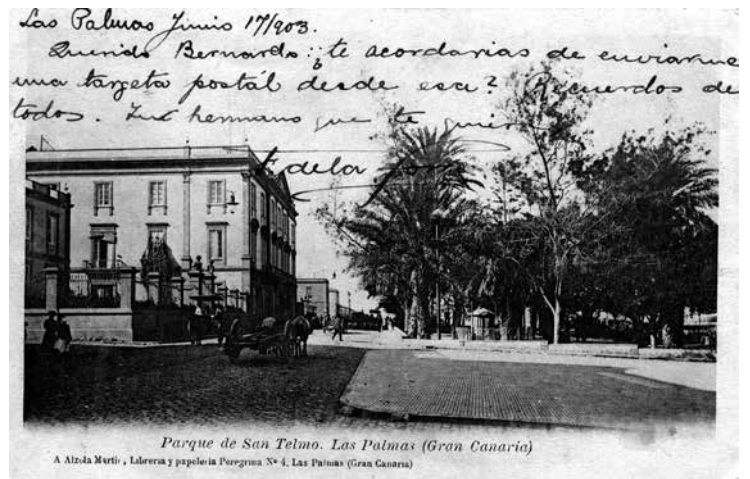 Las Palmas Junio 17/903.
Querido Bernardo: ¿te acordarias de enviarme
una targeta postál desde esa? Recuerdos de
todos. Tu hermano que te quiere
Fdelatorre
Parque de San Telmo. Las Palmas (Gran Canaria)
A Alzola Martin, Libreria y papeleria Peregrina Nº 4, Las Palmas (Gran Canaria)